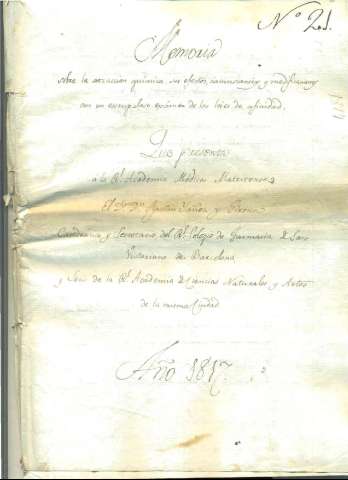 Nº 21.
Memoria
sobre la atraccion quimica, sus efectos, circunstancias y modificaciones
con un exámen de las leies de afinidad.
Que presenta
a la Rl. Academia Medica Matritense
El Dr. Dn.
Catedratico y Secretario del Rl. Colegio de Farmacia de San
Victoriano de Barcelona
y Socio de la Rl. Academia de Ciencias Naturales y Artes
de la misma Ciudad
Año 1817.